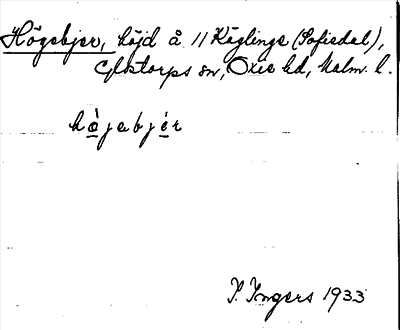 Högebjer, höjd å 11 Käglinge (Sofiedal),
Glostorps sn, Oxie hd, Malm. l.
hòjabjér
I. Ingers 1933